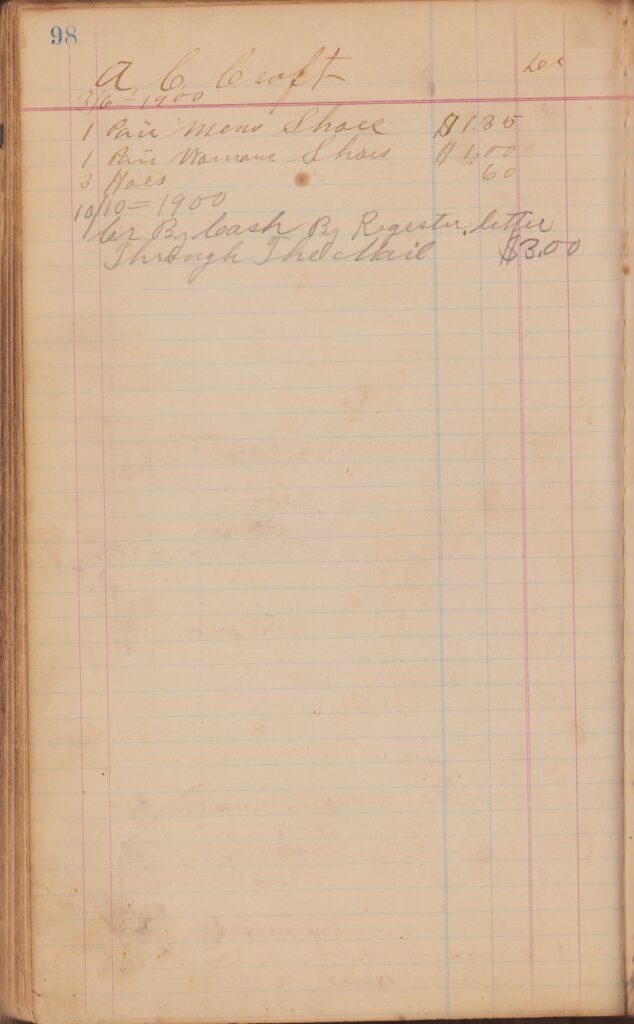 98
A. C. Croft Dr
3/6 - 1900
1 Pair Mens Shoes $1.35
1 Pair Womans Shoes $1.00
3 Hoes 60
10/10 = 1900
Cr By Cash By Regester. letter
Through The Mail $3.00